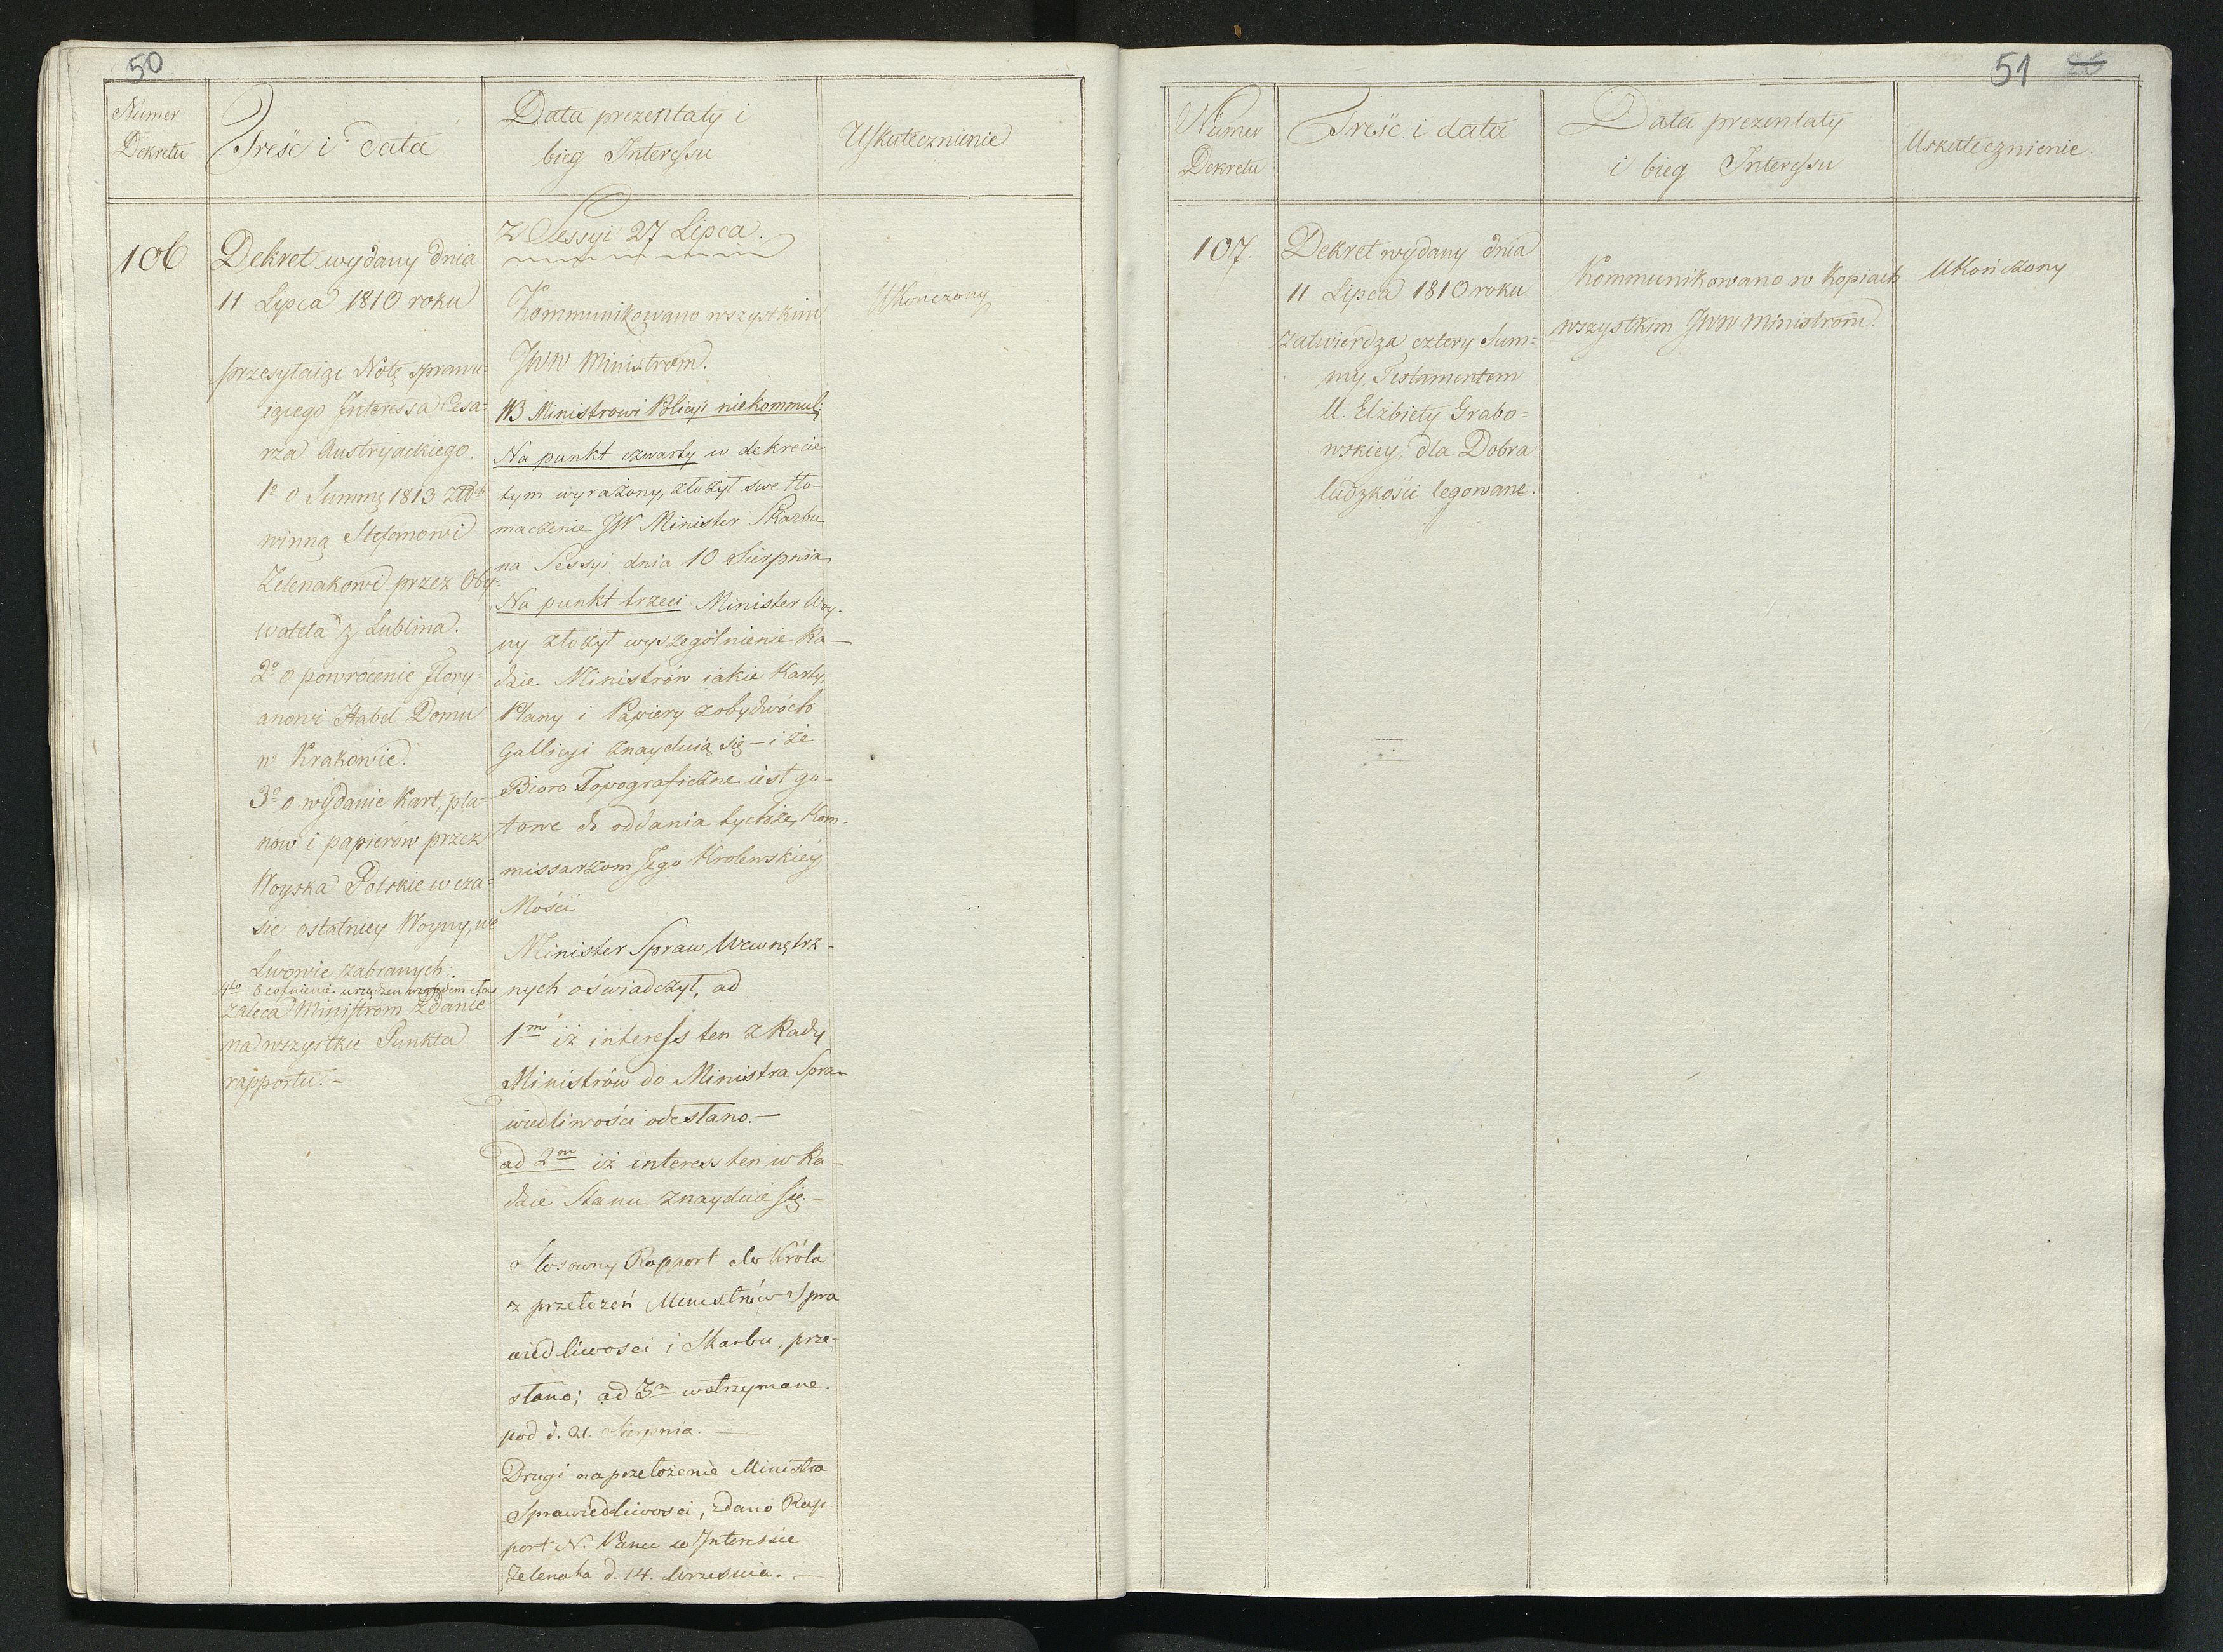 50
Numer
Dekretu
Treść i data
Data prezentaty i
bieg Interessu
Uskutecznienie
106
Dekret wydany dnia
11 Lipca 1810 roku
przesyłaiąc Notę sprawu=
iącego Interessa Cesa=
rza Austryackiego.
1º o Summę 1813 
winną Stefanowi
Zelenakowi przez Oby=
watela z Lublina.
2º o powrócenie Flory=
anowi Habel Domu
w Krakowie.
3º o wydanie kart, pla=
nów i papierów przez
Woyska Polskie w cza=
sie ostatniey Woyny, we
Lwowie zabranych.
4to O cofnienie urządzeń względem
zaleca Ministrom Zdanie
na wszystkie Punkta
rapportu.–
z Sessyi 27 Lipca.
Kommunikowano wszystkim
JWW Ministrom.
NB Ministrowi Policyi niekommuk:
Na punkt czwarty w dekrecie
tym wyrażony, złożył swe tło-
maczenie JW Minister Skarbu
na Sessyi dnia 10 Sierpnia
Na punkt trzeci Minister Woy-
ny złożył wyszegolnienie Ra-
dzie Ministrów iakie Karty,
Plany i Papiery z obydwóch
Gallicyi znayduią się – i że
Bioro Topograficzne iest go-
towe do oddania tychże, Kom-
missarzom Jego Krolewskiéy
Mości
Minister Spraw Wewnętrz-
nych oświadczył, ad
1m iż interess ten z Rady
Ministrów do Ministra Spra-
wiedliwości odesłano.–
ad 2m iż interess ten w Ra-
dzie Stanu znayduie się.–
Stosowny Rapport do Króla
z przełożeń Ministrów Spra
wiedliwosci i Skarbu, prze-
słano; ad 3m wstrzymane.
pod d. 21. Sierpnia. –
Drugi na przełożenie Ministra
Sprawiedliwosci, zdano Rap-
port N. Panu w Interessie
Zelenaka d. 14. Wrzesnia. –
Ukończony
51 26
Numer
Dekretu
Treść i data
Data prezentaty
i bieg Interessu
Uskutecznienie.
107.
Dekret wydany dnia
11 Lipca 1810 roku
zatwierdza cztery Sum=
my, Testamentem
U. Elżbiety Grabo=
wskiey, dla Dobra
ludzkości legowane.
Kommunikowano w Kopiach
wszystkim JWW Ministrom.
Ukończony